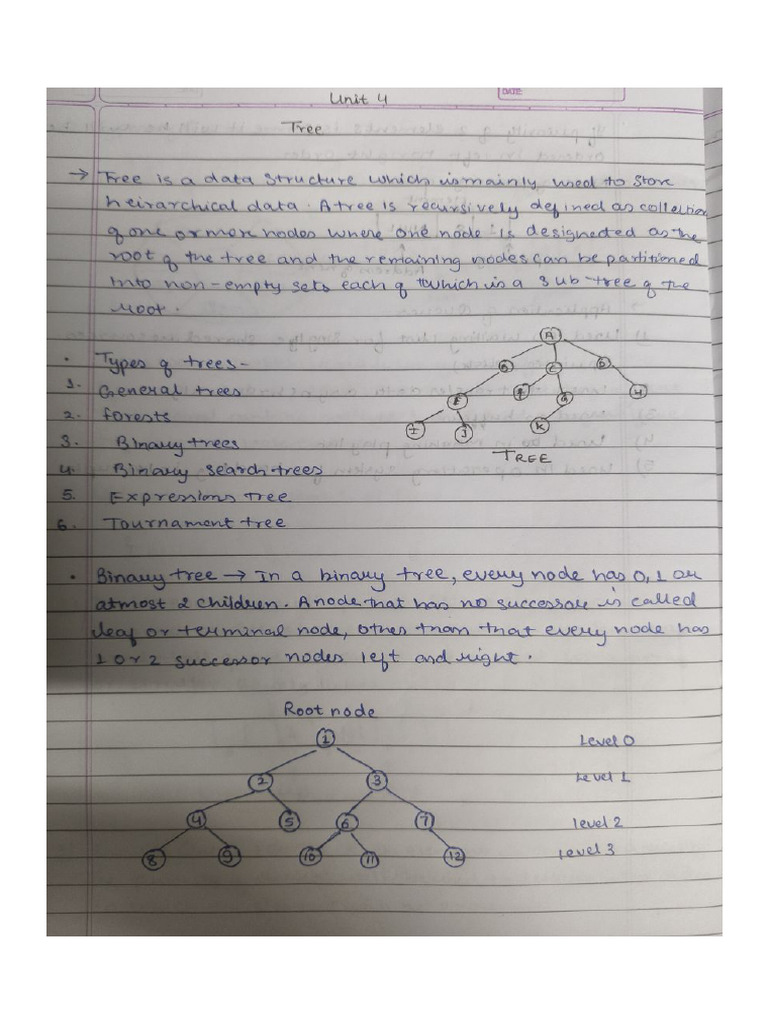 Unit 4
DATE
Tree
→ Tree is a data structure which is mainly used to store
heirarchical data. A tree is recursively defined as collection
of one or more nodes where one node is designated as the
root of the tree and the remaining nodes can be partitioned
into non-empty sets each of which is a sub tree of the
root.
• Types of trees-
1. General trees
2. forests
3. Binary trees
4. Binary search trees
5. Expressions Tree
6. Tournament tree
A
C D
E F G H
I J K
TREE
• Binary tree → In a binary tree, every node has 0, 1 or
atmost 2 children. A node that has no successor is called
leaf or terminal node, other than that every node has
1 or 2 successor nodes left and right.
Root node
1 Level 0
2 3 Level 1
4 5 6 7 level 2
8 9 10 11 12 level 3